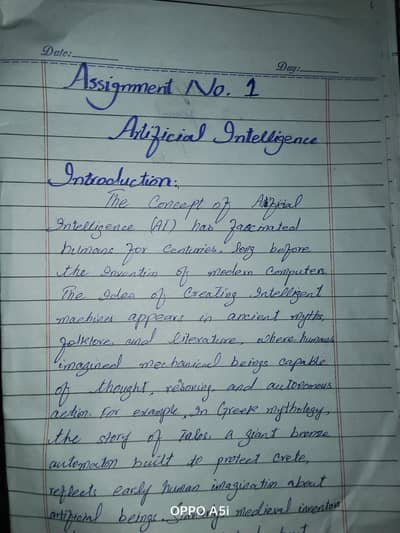 Date:
Day:
Assignment No. 1
Artificial Intelligence
Introduction:
The Concept of Artificial
Intelligence (AI) has fascinated
humans for centuries, long before
the invention of modern Computer.
The Idea of Creating Intelligent
machines appears in ancient myths,
folklore and literature, where humans
imagined mechanical beings capable
of thought, reasoning and autonomous
action. For example, In Greek mythology,
the story of Talos, a giant bronze
automaton built to protect Crete,
reflects early human imagination about
artificial beings. medieval inventors
OPPO A5i